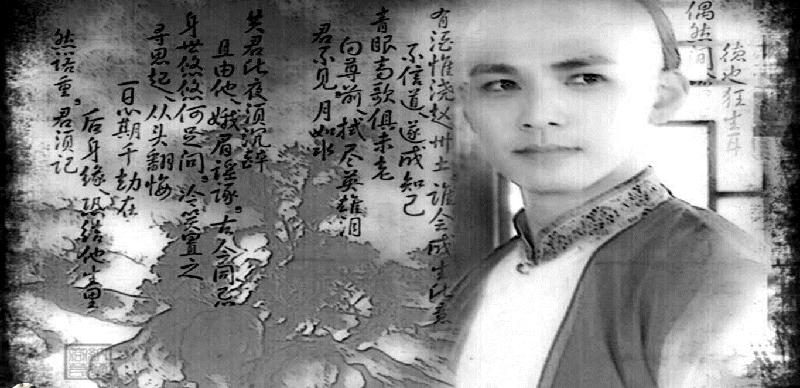 德也狂生耳
偶然间、
有酒惟浇赵州土。谁会成生此意
不信道遂成知己
青眼高歌俱未老
向尊前、拭尽英雄泪
君不见月如水
共君此夜须沉醉
且由他、娥眉谣诼。古今同忌
身世悠悠何足问。冷笑置之
寻思起、从头翻悔
一日心期千劫在
后身缘、恐结他生里
然诺重。君须记